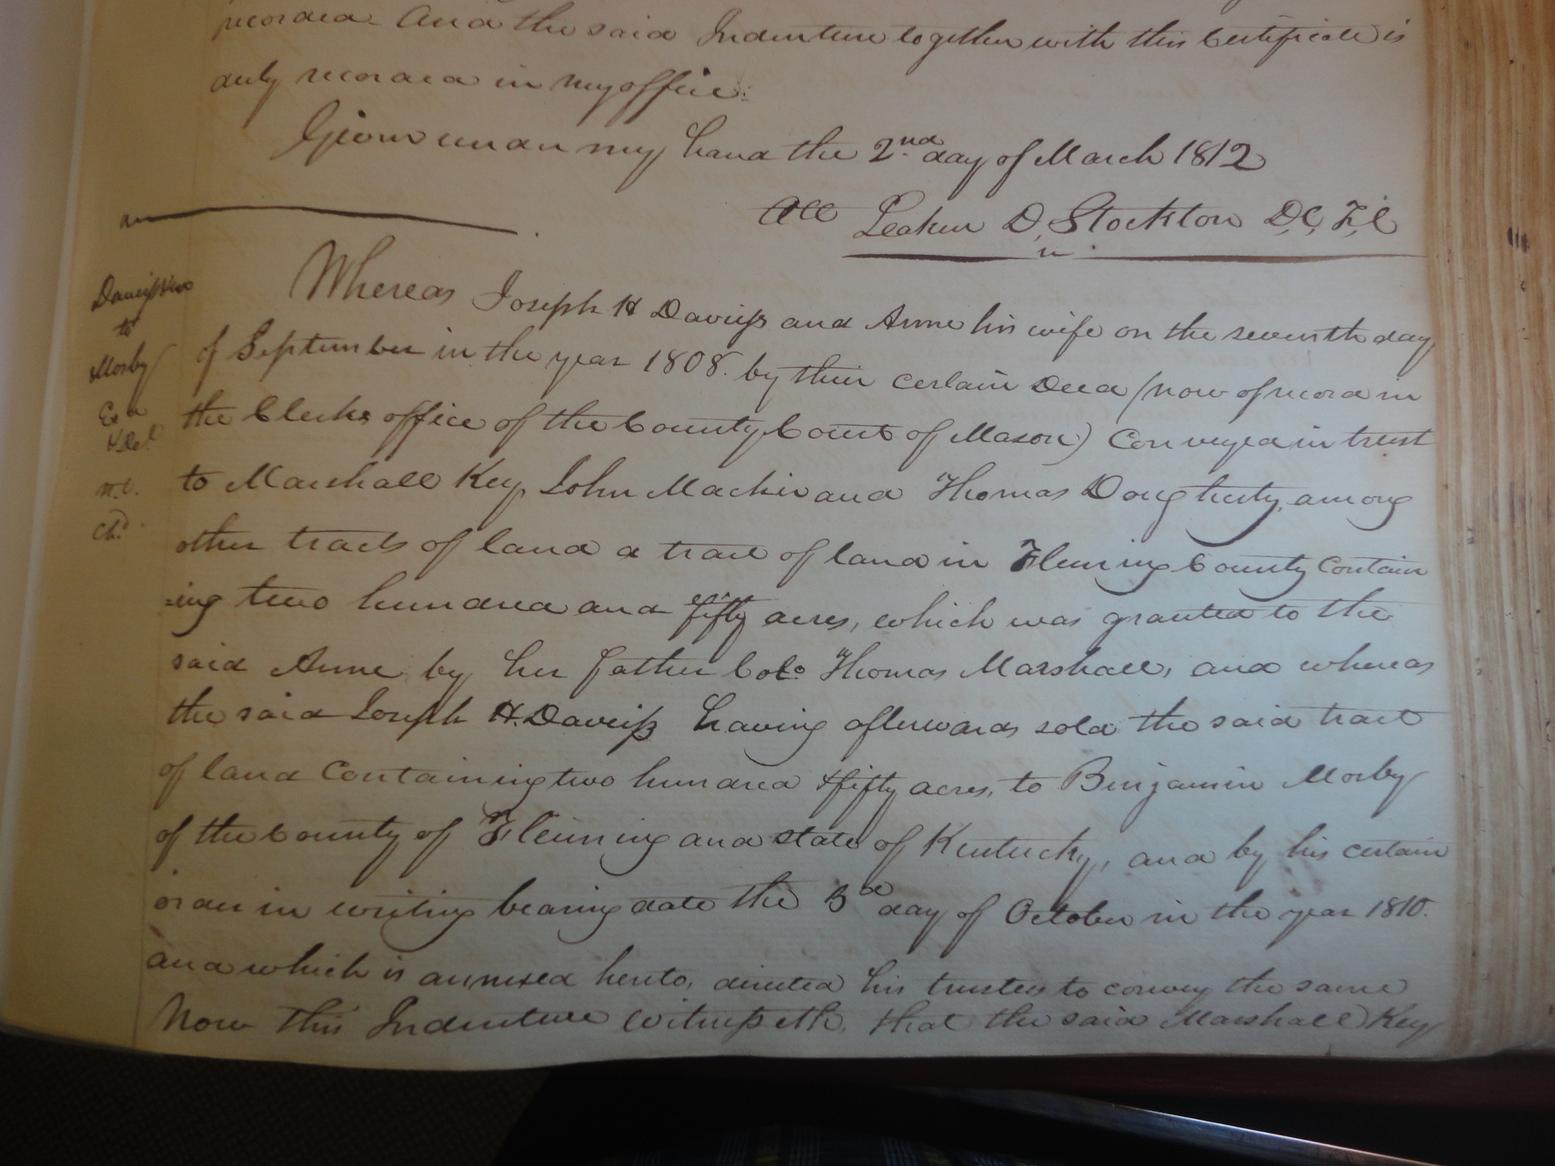 recorded And the said Indenture together with this Certificate is
duly recorded in my office.
Given under my hand the 2nd day of March 1812
Leaken D. Stockton D.C.F.C
Daveiss
to
Mosby
Ex d
& Del
Whereas Joseph H Daveiss and Anne his wife on the seventh day
of September in the year 1808. by their certain Deed (now of record in
the Clerks office of the County Court of Mason) Conveyed in trust
to Marshall Key, John Machir and Thomas Dougherty, among
other tracts of land a tract of land in Fleming County Contain
=ing two hundred and fifty acres, which was granted to the
said Anne by her father Colo Thomas Marshall, and whereas
the said Joseph H. Daveiss having afterwards sold the said tract
of land Containing two hundred & fifty acres, to Benjamin Mosby
of the County of Fleming and state of Kentucky, and by his certain
order in writing bearing date the 3d day of October in the year 1810.
and which is annexed hereto, directed his trustees to convey the same
Now this Indenture Witnesseth, that the said Marshall Key